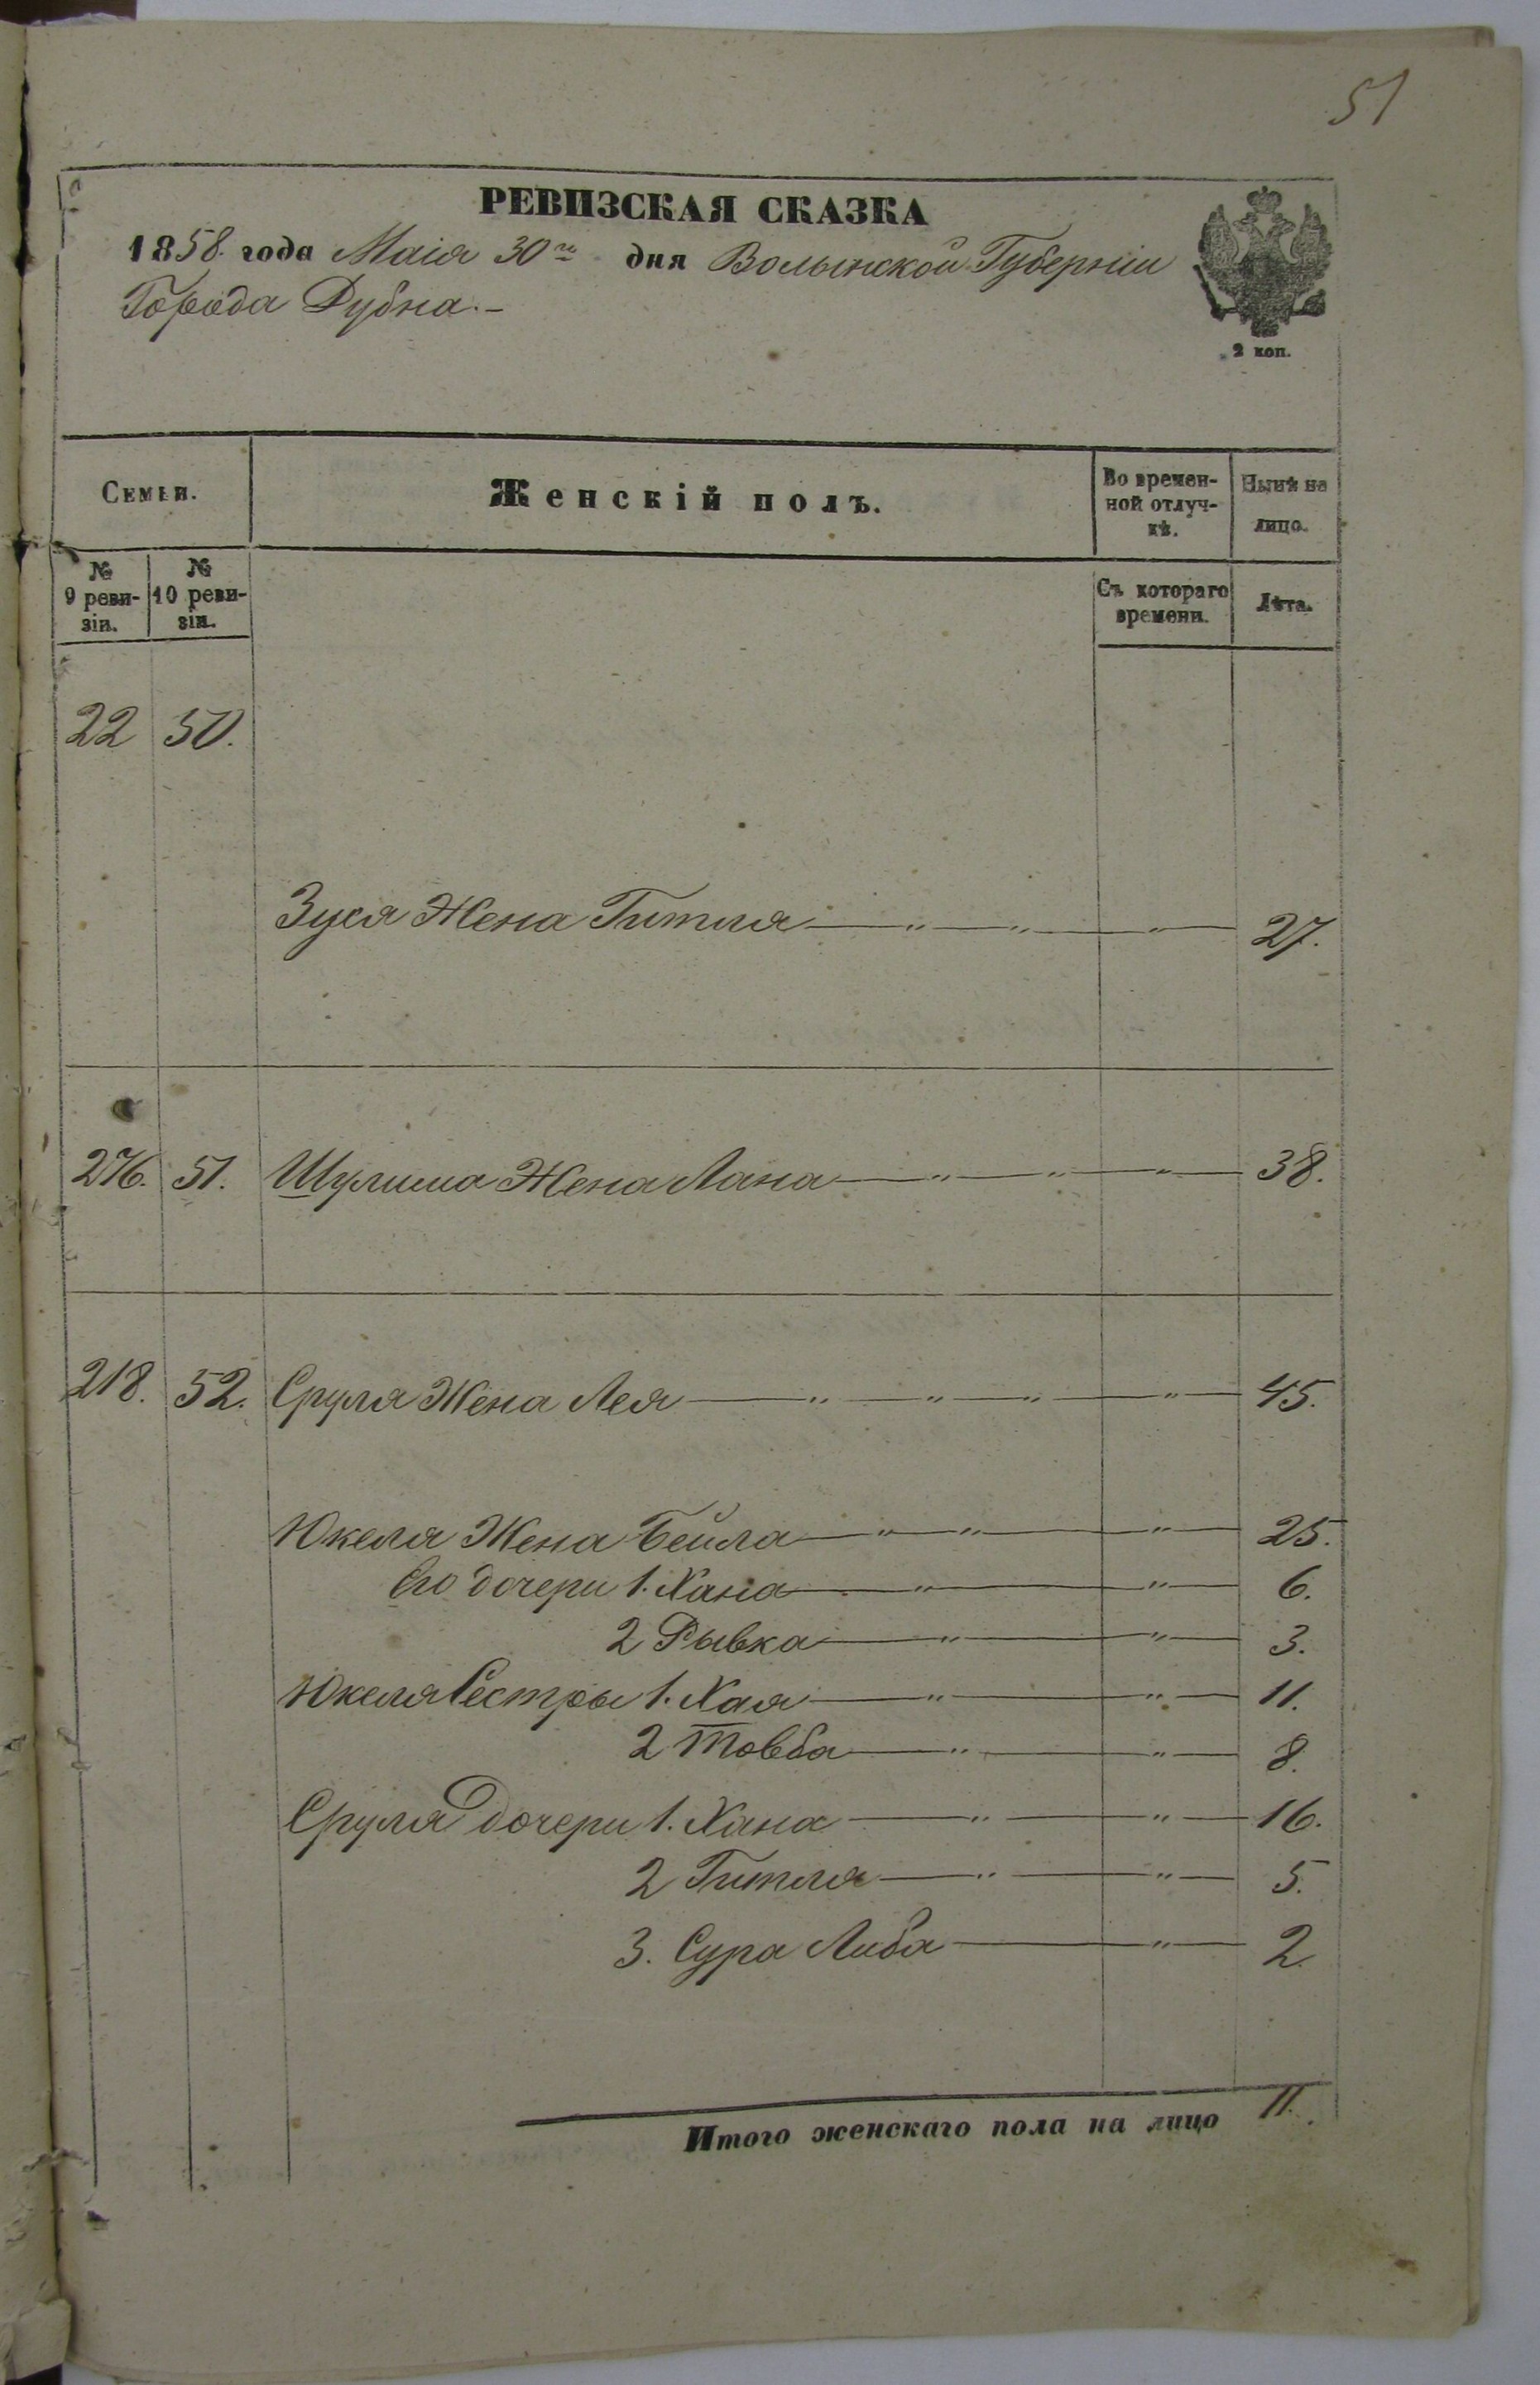 51
РЕВИЗСКАЯ СКАЗКА
1858. года Маія 30го дня Волынской Губерніи
Города Дубна.-
2 коп.
Семьи.
Женскій полъ.
Во времен-
ной отлуч-
кѣ.
Нынѣ на
лицо.
№
9 реви-
зіи.
№
10 реви-
зіи.
Съ котораго
времени.
Лѣта.
22 50.
Зуся Жена Гитля — " — " — " — 27.
276. 51. Шулима Жена Лана — " — " — " — 38.
218. 52. Сруля Жена Лея — " — " — " — " — 45.
Юкеля Жена Бейла — " — " — " — 25.
Его дочери 1. Хана — " — " — 6.
2 Рывка — " — " — 3.
Юкеля Сестры 1. Хая — " — " — 11.
2 Товба — " — " — 8.
Сруля дочери 1. Хана — " — " — 16.
2 Гитля — " — " — 5.
3. Сура Либа — " — 2.
Итого женскаго пола на лицо 11.